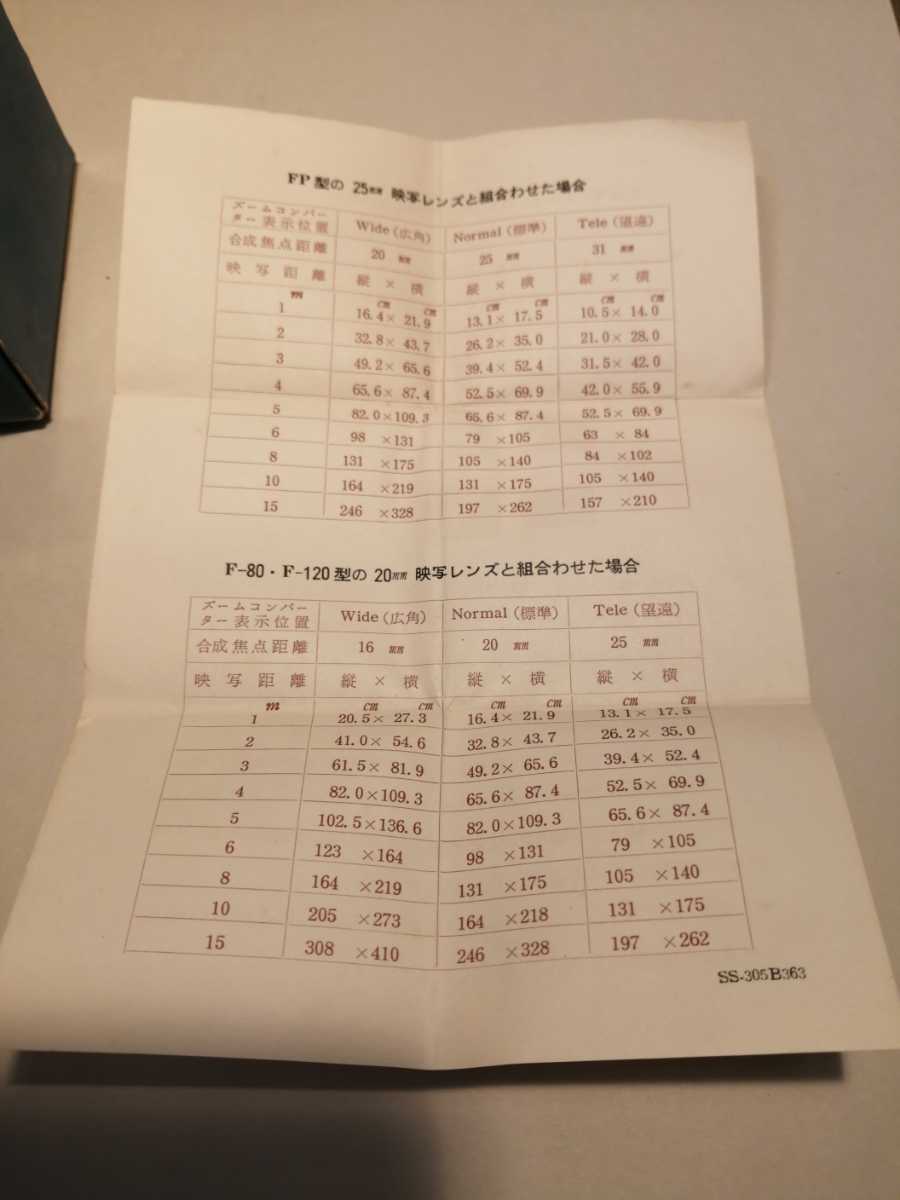 FP型の 25mm 映写レンズと組合わせた場合
ズームコンバーター表示位置 Wide(広角) Normal(標準) Tele(望遠)
合成焦点距離 20 mm 25 mm 31 mm
映写距離 縦×横 縦×横 縦×横
1 m 16.4 cm × 21.9 cm 13.1 cm × 17.5 cm 10.5 cm × 14.0 cm
2 32.8× 43.7 26.2× 35.0 21.0× 28.0
3 49.2× 65.6 39.4× 52.4 31.5× 42.0
4 65.6× 87.4 52.5× 69.9 42.0× 55.9
5 82.0×109.3 65.6× 87.4 52.5× 69.9
6 98 ×131 79 ×105 63 × 84
8 131 ×175 105 ×140 84 ×102
10 164 ×219 131 ×175 105 ×140
15 246 ×328 197 ×262 157 ×210
F-80・F-120型の 20mm 映写レンズと組合わせた場合
ズームコンバーター表示位置 Wide(広角) Normal(標準) Tele(望遠)
合成焦点距離 16 mm 20 mm 25 mm
映写距離 縦×横 縦×横 縦×横
1 m 20.5 cm × 27.3 cm 16.4 cm × 21.9 cm 13.1 cm × 17.5 cm
2 41.0× 54.6 32.8× 43.7 26.2× 35.0
3 61.5× 81.9 49.2× 65.6 39.4× 52.4
4 82.0×109.3 65.6× 87.4 52.5× 69.9
5 102.5×136.6 82.0×109.3 65.6× 87.4
6 123 ×164 98 ×131 79 ×105
8 164 ×219 131 ×175 105 ×140
10 205 ×273 164 ×218 131 ×175
15 308 ×410 246 ×328 197 ×262
SS-305B363